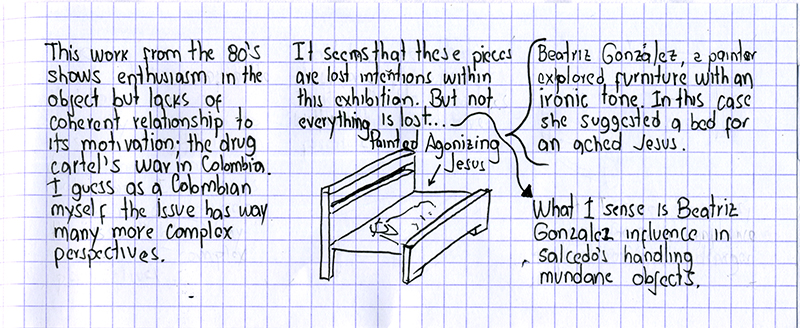 This work from the 80's
shows enthusiasm in the
object but lacks of
coherent relationship to
its motivation: the drug
cartel's war in Colombia.
I guess as a Colombian
myself the issue has way
many more complex
perspectives.
It seems that these pieces
are lost intentions within
this exhibition. But not
everything is lost...
Painted Agonizing
Jesus
Beatriz González, a painter
explored furniture with an
ironic tone. In this case
she suggested a bed for
an ached Jesus.
What I sense is Beatriz
Gonzalez influence in
Salcedo's handling
mundane objects.